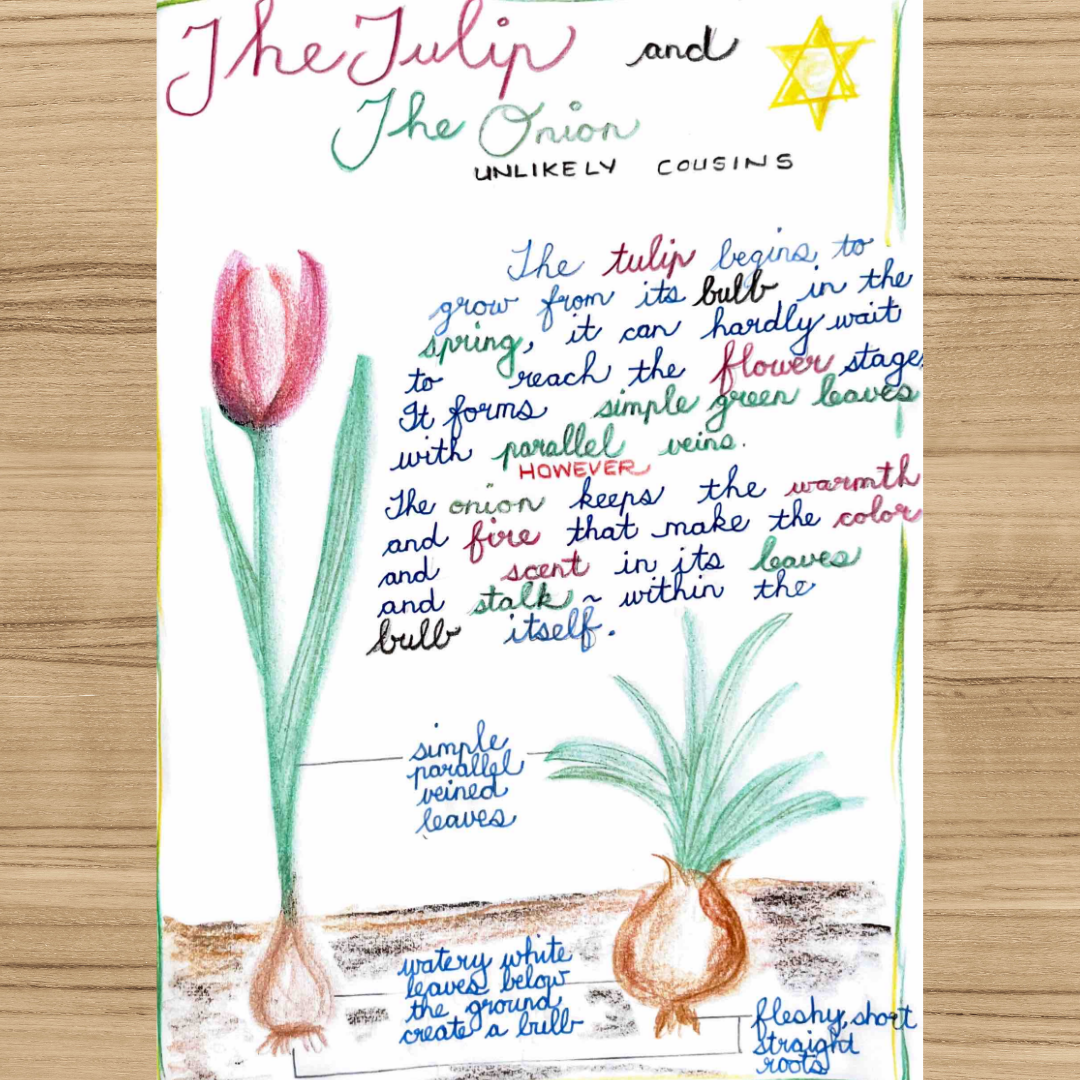 The Tulip and
The Onion
UNLIKELY COUSINS
The tulip begins to
grow from its bulb in the
spring, it can hardly wait
to reach the flower stage.
It forms simple green leaves
with parallel veins.
HOWEVER
The onion keeps the warmth
and fire that make the color
and scent in its leaves
and stalk ~ within the
bulb itself.
simple
parallel
veined
leaves
watery white
leaves below
the ground
create a bulb
fleshy, short
straight
roots